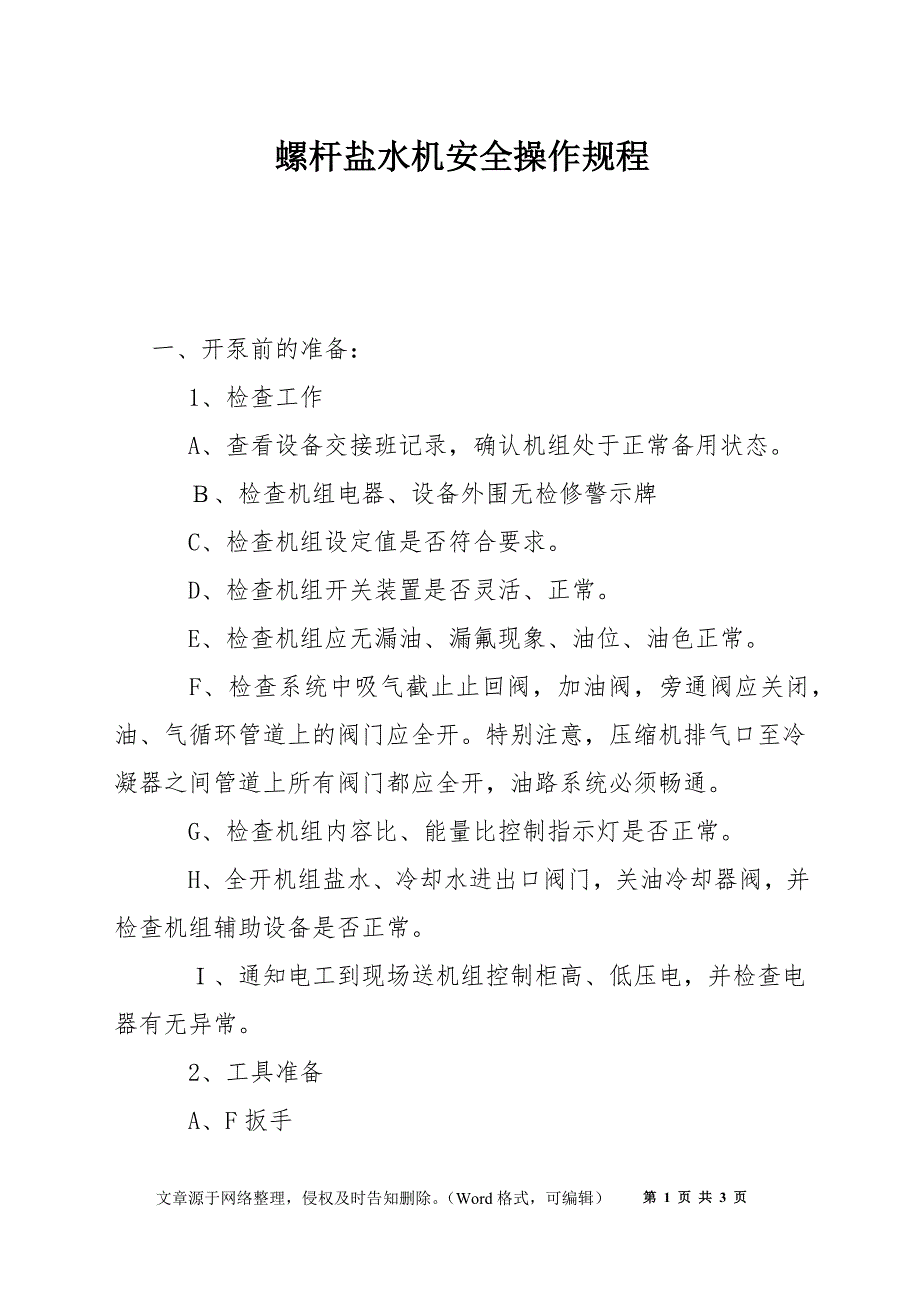 螺杆盐水机安全操作规程
一、开泵前的准备：
1、检查工作
A、查看设备交接班记录，确认机组处于正常备用状态。
Ｂ、检查机组电器、设备外围无检修警示牌
C、检查机组设定值是否符合要求。
D、检查机组开关装置是否灵活、正常。
E、检查机组应无漏油、漏氟现象、油位、油色正常。
F、检查系统中吸气截止止回阀，加油阀，旁通阀应关闭，
油、气循环管道上的阀门应全开。特别注意，压缩机排气口至冷
凝器之间管道上所有阀门都应全开，油路系统必须畅通。
G、检查机组内容比、能量比控制指示灯是否正常。
H、全开机组盐水、冷却水进出口阀门，关油冷却器阀，并
检查机组辅助设备是否正常。
Ｉ、通知电工到现场送机组控制柜高、低压电，并检查电
器有无异常。
2、工具准备
A、F 扳手
文章源于网络整理，侵权及时告知删除。（Word 格式，可编辑） 第 1 页 共 3 页